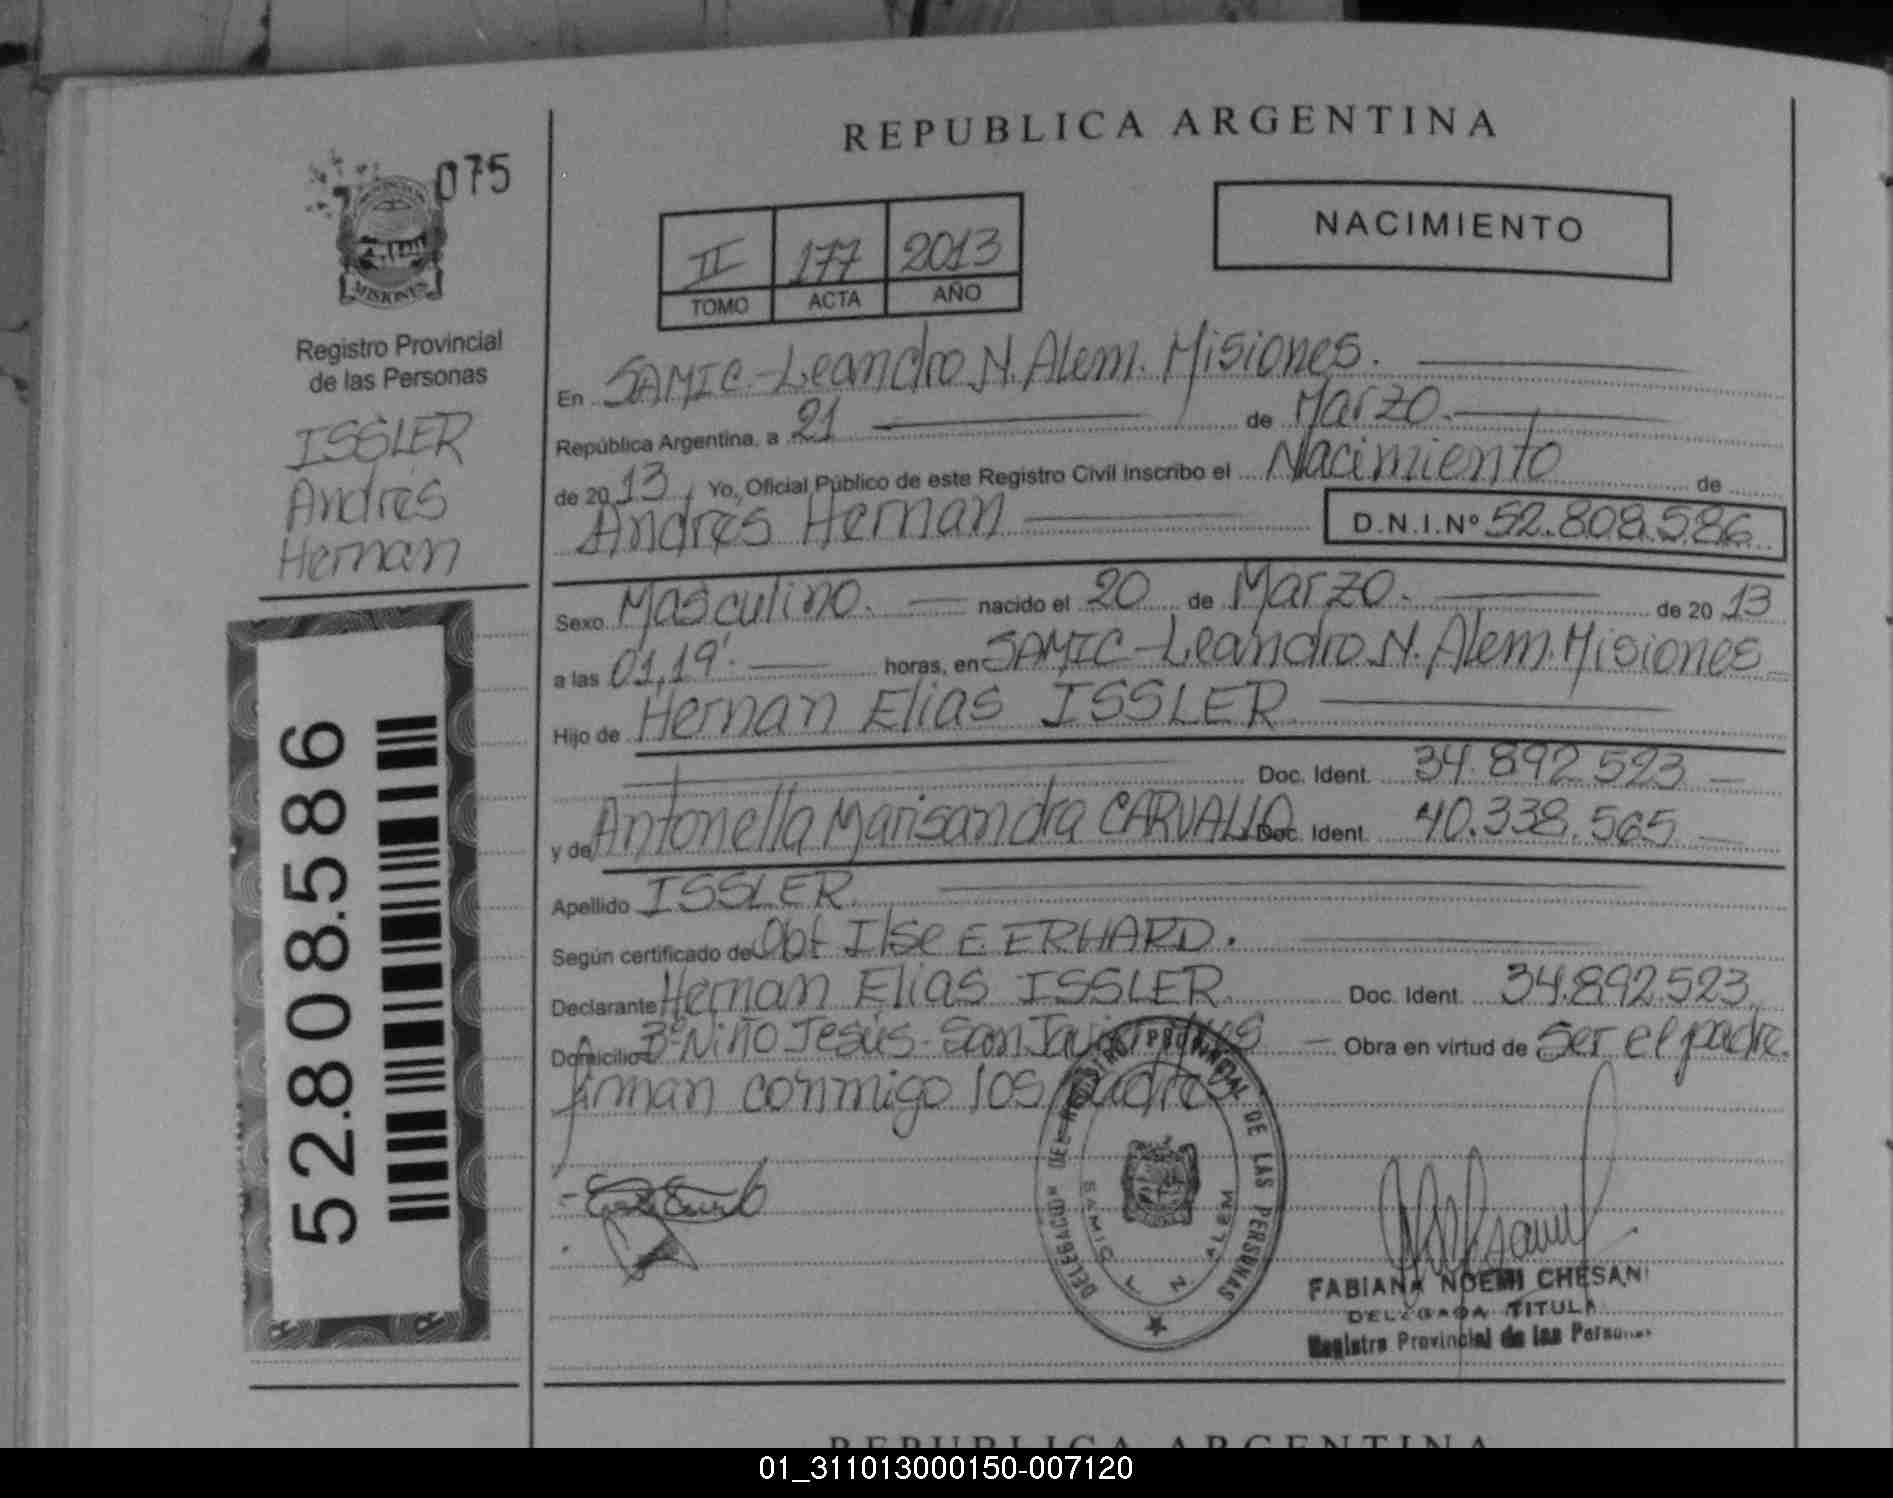 REPUBLICA ARGENTINA
075
MISIONES
Registro Provincial
de las Personas
ISSLER
Andrés
Hernan
52.808.586
NACIMIENTO
II 177 2013
TOMO ACTA AÑO
En SAMIC-Leandro N. Alem. Misiones.
República Argentina, a 21 de Marzo.
de 20 13, Yo, Oficial Público de este Registro Civil inscribo el Nacimiento de
Andrés Hernan D.N.I.Nº 52.808.586
Sexo Masculino. nacido el 20 de Marzo. de 20 13
a las 01,19'. horas, en SAMIC-Leandro N. Alem. Misiones
Hijo de Hernan Elias ISSLER
Doc. Ident. 34.892.523
y de Antonella Marisandra CARVALLO Doc. Ident. 40.338.565
Apellido ISSLER.
Según certificado de Obt Ilse E. ERHARD.
Declarante Hernan Elias ISSLER Doc. Ident. 34.892.523
Domicilio Bº Niño Jesús-San Javier Obra en virtud de Ser el padre.
firman conmigo los padres
DELEGACION DEL REGISTRO PROVINCIAL DE LAS PERSONAS
SAMIC L N ALEM
FABIANA NOEMI CHESANI
DELEGADA TITULA
Registro Provincial de las Person
REPUBLICA ARGENTINA
01_311013000150-007120